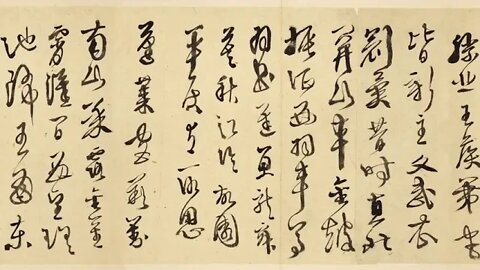 勝悲王侯第宅
皆新主文武衣
冠異昔時直北
關山車金鼓
振征西羽車馬
羽書遲魚龍寂
寞秋江冷故國
平居有所思
蓬萊宮闕對
南山承露金莖
霄漢間西望瑤
池降王母東